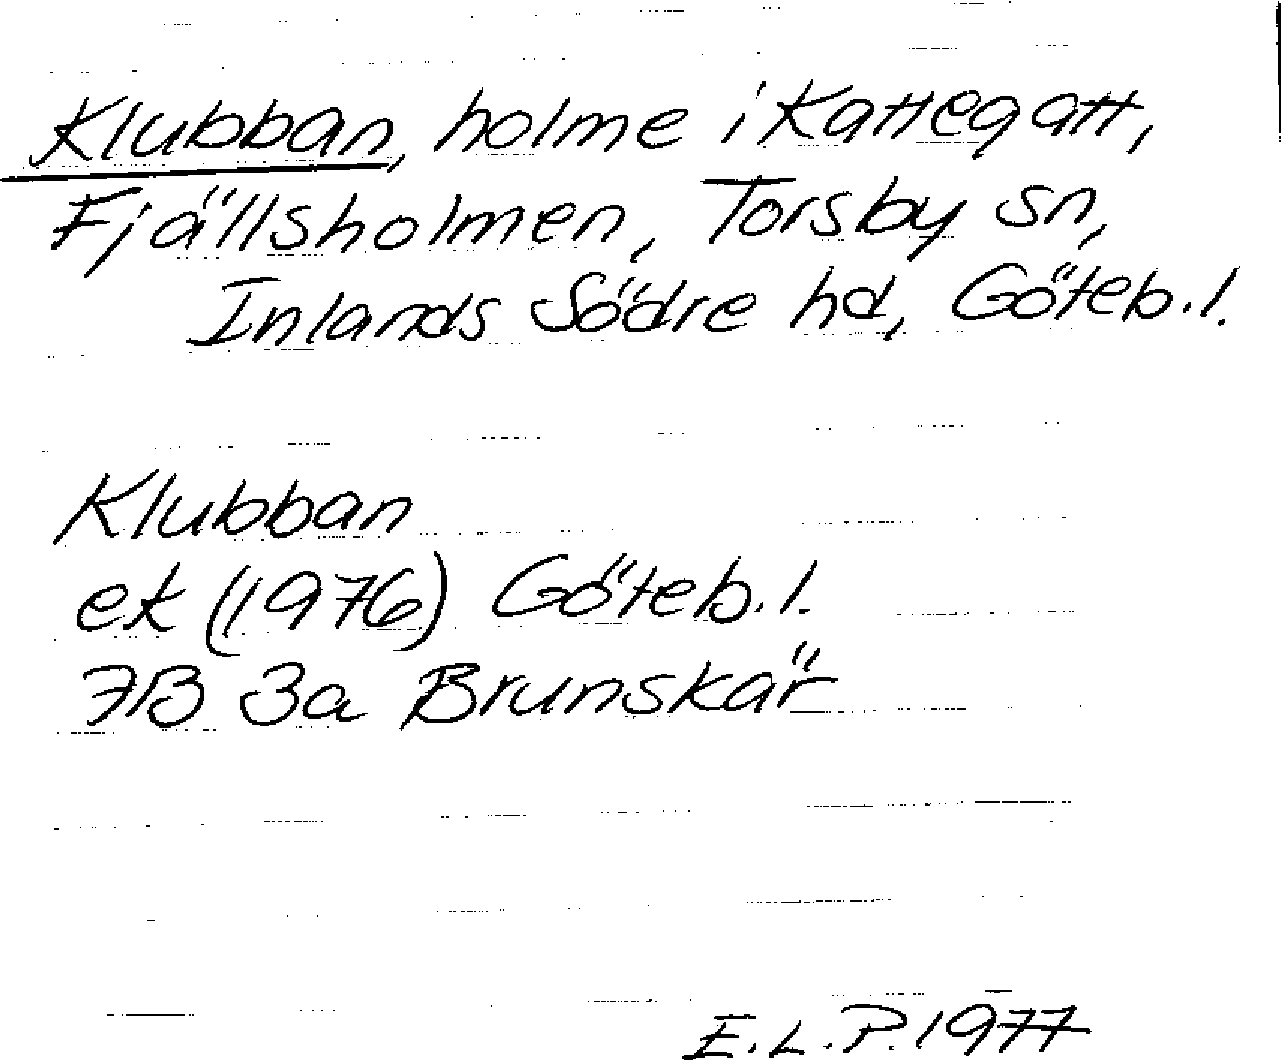 Klubban, holme i Kattegatt,
Fjällsholmen, Torsby sn,
Inlands Södre hd, Göteb. l.
Klubban
ek (1976) Göteb. l.
7B 3a Brunskär
E. L. P. 1977